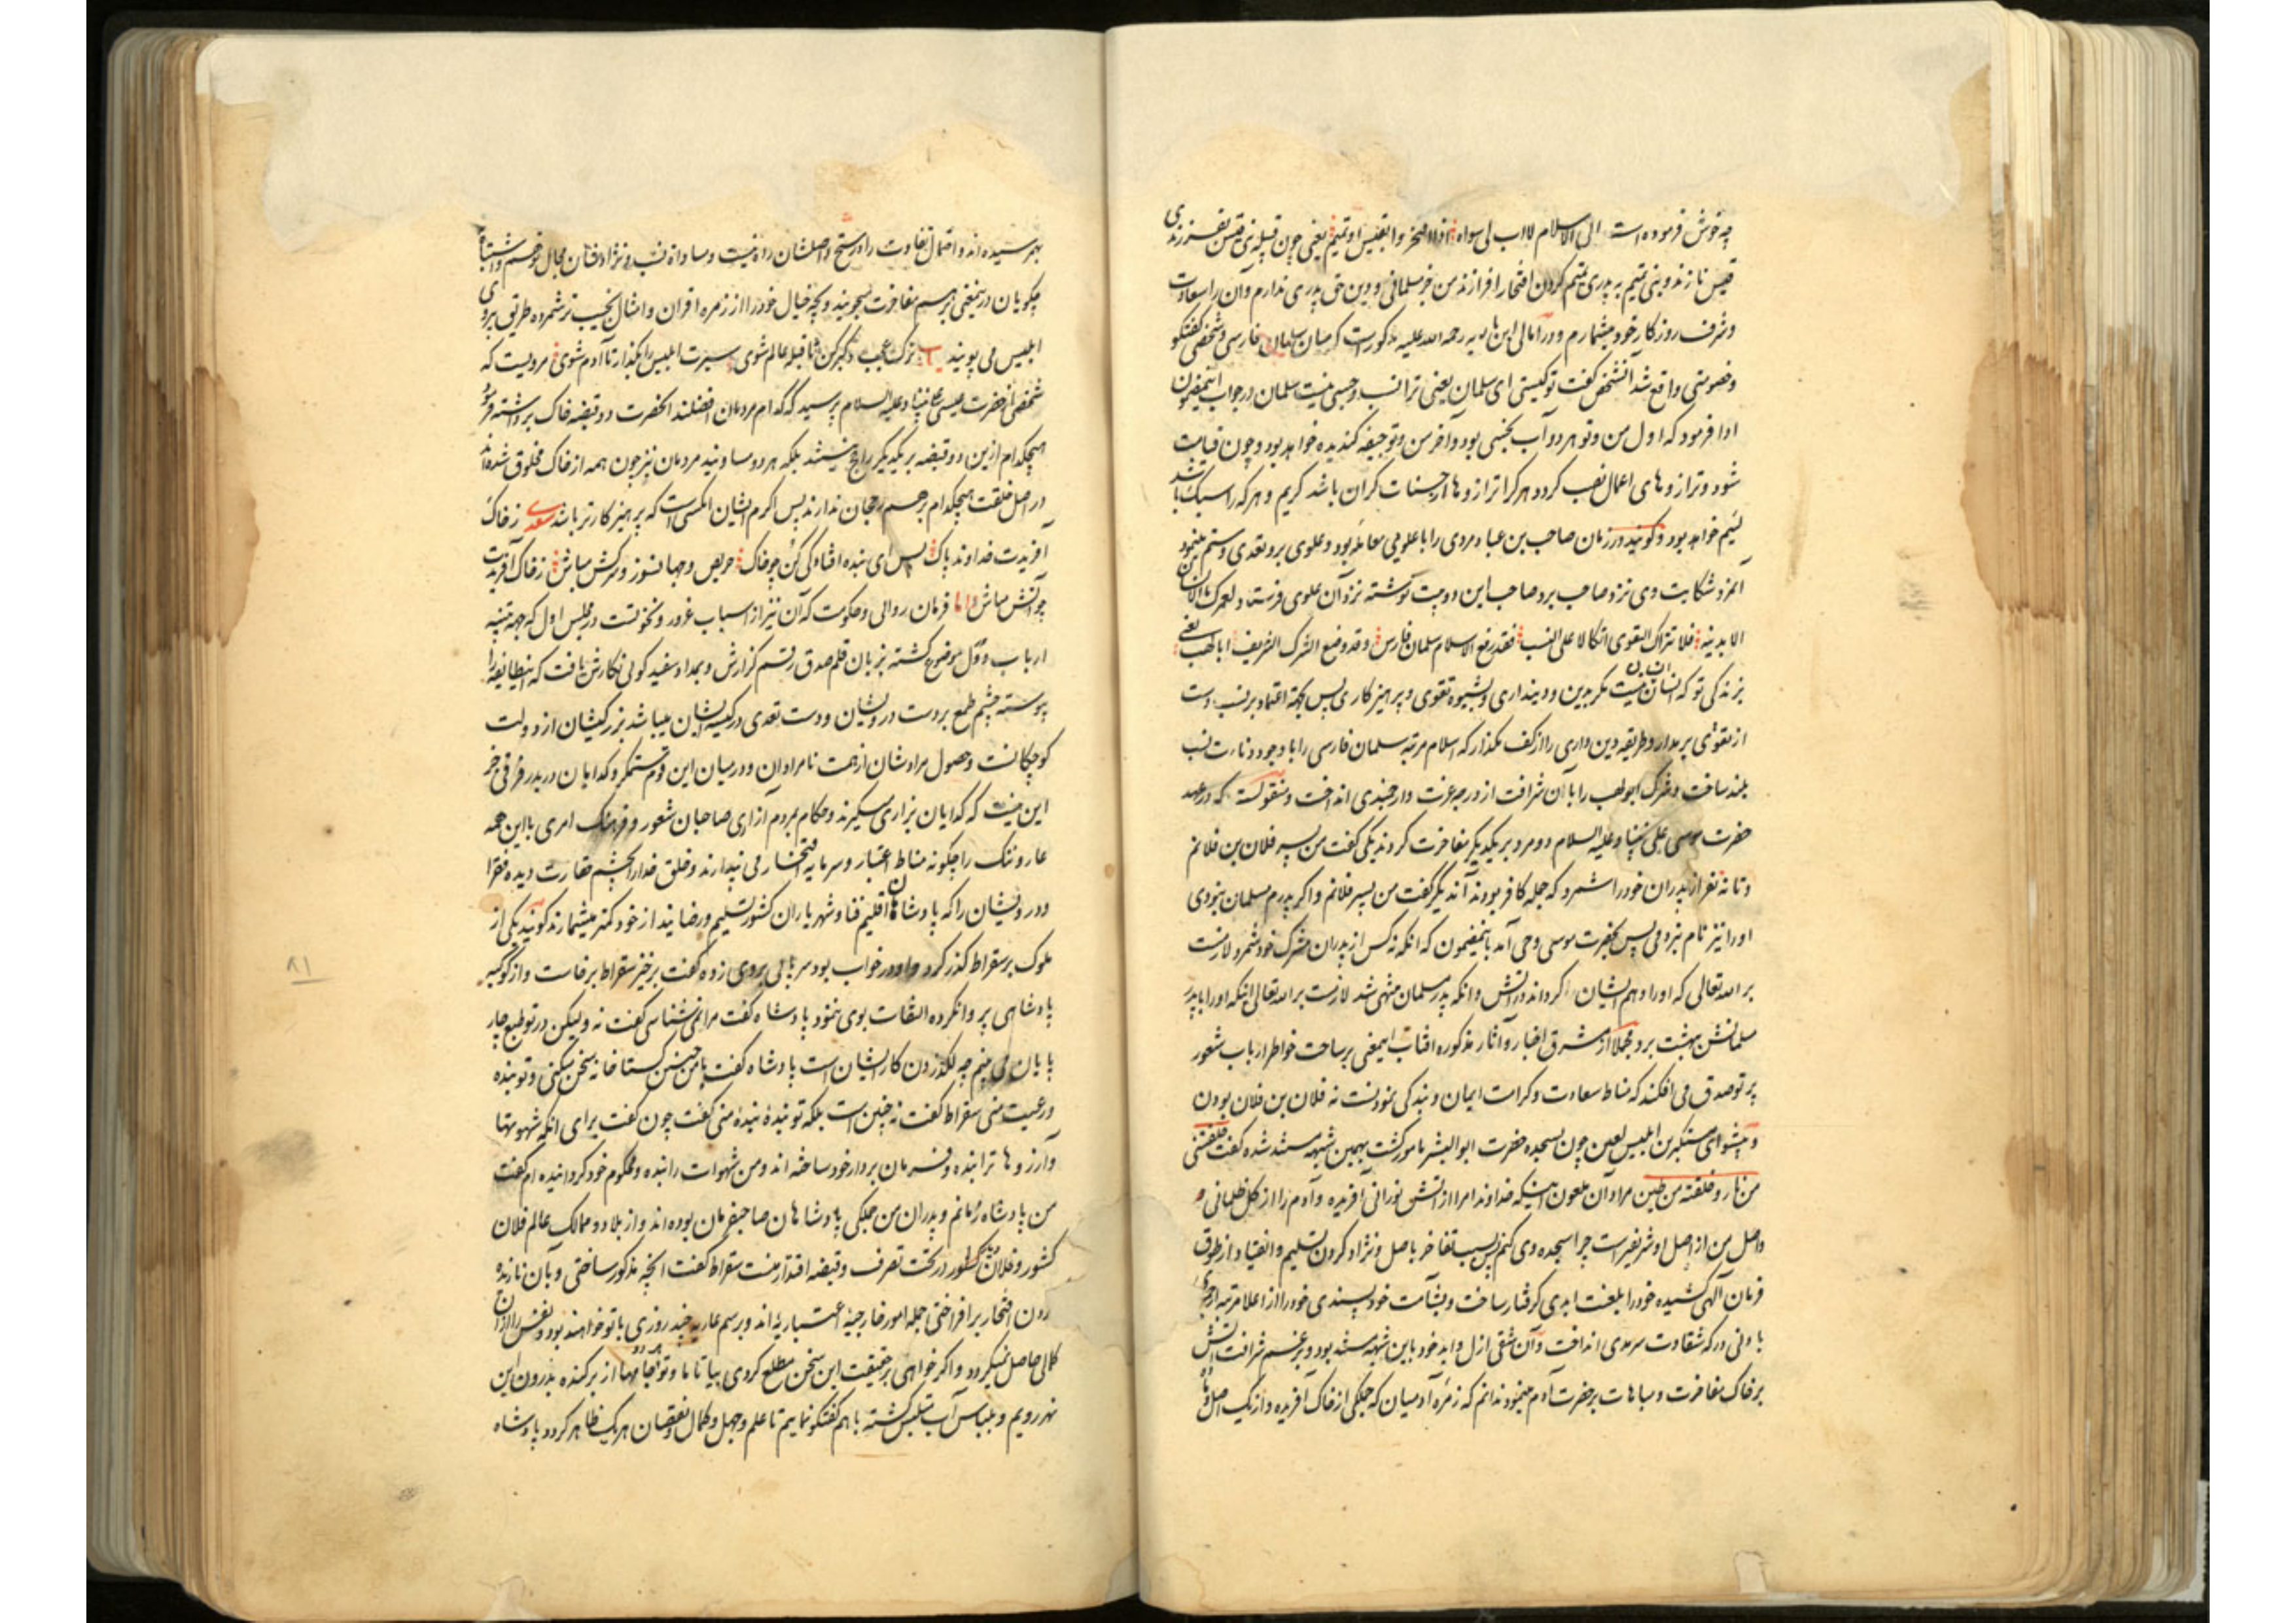 چه خوش فرموده است ابی الاسلام لا اب لی سواه اذا افتخروا بقیس او تمیم یعنی چون قبیله بنی قیس بفرزندی
قیس نازند و بنی تمیم به پدری تمیم گردن افتخار افرازند من خبر مسلمانی و دین حق پدری ندارم و آن را سعادت
و شرف روزکار خود میشمارم و در امالی ابن بابویه رحمه الله علیه مذکورست که میان سلمان فارسی و شخصی گفتگو
و خصومتی واقع شد آنشخص گفت تو کیستی ای سلمان یعنی ترا نسب و حسبی نیست سلمان در جواب اینمضمون
ادا فرمود که اول من و تو هر دو آب نجسی بود و آخر من و تو جیفه گندیده خواهد بود و چون قیامت
شود و ترازوهای اعمال نصب گردد هر کرا ترازوها از حسنات گران باشد کریم و هر که را سبک باشد
لئیم خواهد بود و گویند در زمان صاحب بن عباد مردی را با علویی معامله بود و علوی برو تعدی و ستم مینمود
آنمرد شکایت وی نزد صاحب برد صاحب این دو بیت نوشته نزد آن علوی فرستاد لعمرک ما الانسان
الا بدینه فلا تترک التقوی اتکالا علی النسب فقد رفع الاسلام سلمان فارس و قد وضع الشرک الشریف ابا لهب یعنی
بزندگی تو که انسان نیست مگر بدین و دینداری و بشیوه تقوی و پرهیزکاری پس بجهة اعتماد بر نسب دست
از تقوی بر مدار و طریقه دین داری را از کف مگذار که اسلام مرتبه سلمان فارسی را با وجود دنائت نسب
بلند ساخت و شرک ابولهب را با آن شرافت از درجه عزت و ارجمندی انداخت و منقولست که در عهد
حضرت موسی علی نبینا و علیه السلام دو مرد بر یکدیگر مفاخرت کردند یکی گفت من پسر فلان بن فلانم
و تا نه نفر از پدران خود را شمرد که جمله کافر بودند آن دیگر گفت من پسر فلانم و اگر پدرم مسلمان نبودی
او را نیز نام نبردمی پس بحضرت موسی وحی آمد باینمضمون که آنکه نه کس از پدران مشرک خود شمرد لازمست
بر الله تعالی که او را دهم ایشان گرداند در آتش و آنکه پدر مسلمان منتهی شد لازمست بر الله تعالی اینکه او را با پدر
مسلمانش بهشت برد مجملا از مشرق اخبار و آثار مذکوره آفتاب اینمعنی بر ساحت خواطر ارباب شعور
پرتو صدق می افکند که مناط سعادت و کرامت ایمان و بندگی نمودنست نه فلان بن فلان بودن
و پیشوای مستکبرین ابلیس لعین چون بسجده حضرت ابوالبشر مامور گشت بهمین شبهه مستند شده گفت خلقتنی
من نار و خلقته من طین مراد آن ملعون اینکه خداوندا مرا از آتش نورانی آفریده و آدم را از گل ظلمانی و
اصل من از اصل او شریفتر است چرا سجده وی کنم پس بسبب تفاخر باصل و نژاد گردن تسلیم و انقیاد از طوق
فرمان الهی کشیده خود را بلعنت ابدی گرفتار ساخت و بشآمت خودپسندی خود را از اعلا مرتبه
با دنی درکه شقاوت سرمدی انداخت و آن شقی ازل و ابد خود باین شبهه مستند بود و بزعم شرافت آتش
بر خاک مفاخرت و مباهات بر حضرت آدم مینمود ندانم که زمره آدمیان که جملگی از خاک آفریده و از یک اصل
بهم رسیده اند و احتمال تفاوت راه در سنخ و اصلشان راه نیست و مساواة نسب و نژادشان مجال توهم و اشتباه
چگونه با آن درینمعنی بر هم مفاخرت میجویند و بچه خیال خود را از زمره اقران و امثال نجیب تر شمرده طریق پیروی
ابلیس می پویند ترک عجب و کبر کن تا قبله عالم شوی سیرت ابلیس را بگذار تا آدم شوی مرویست که
شخصی از حضرت عیسی علی نبینا و علیه السلام پرسید که کدام مردمان افضلند آنحضرت دو قبضه خاک برداشته فرمود
هیچکدام ازین دو قبضه بر یکدیگر راجح نیستند بلکه هر دو مساویند مردمان نیز چون همه از خاک مخلوق شده اند
در اصل خلقت هیچکدام بر هم رجحان ندارند پس اکرم ایشان آنکسی است که پرهیزکارتر باشد سعدی ز خاک
آفریدت خداوند پاک پس ای بنده افتادگی کن چو خاک حریص و جهانسوز و سرکش مباش ز خاک آفریدت
چو آتش مباش و اما فرمان روائی و حکومت که آن نیز از اسباب غرور و نخوتست در مجلس اول که بجهة تنبیه
ارباب دول موضوع گشته بزبان قلم صدق رقم گزارش و بمداد سفید گوئی نگارش یافت که اینطایفه را
پیوسته چشم طمع بر دست درویشان و دست تعدی در کیسه ایشان میباشد بزرگیشان از دولت
کوچکانست و حصول مرادشان از همت نامرادان و در میان این قوم ستمگر و گدایان در بدر فرقی جز
این نیست که گدایان بزاری میگیرند و حکام بمردم آزاری صاحبان شعور و فرهنگ امری با این همه
عار و ننگ را چگونه مناط اعتبار و سرمایه افتخار می پندارند و خلق خدا را بچشم حقارت دیده فقرا
و درویشان را که پادشاهان اقلیم فنا و شهریاران کشور تسلیم و رضایند از خود کمتر میشمارند گویند یکی از
ملوک بر سقراط گذر کرد و او در خواب بود سر پائی بروی زده گفت برخیز سقراط برخاست و از کوکبه
پادشاهی پروا نکرده التفات بوی ننمود پادشاه گفت مرا نمی شناسی گفت نه ولیکن در تو طبع چار
پایان می بینم چه لگد زدن کار ایشان است پادشاه گفت با من چنین گستاخانه سخن میکنی و تو بنده
و رعیت منی سقراط گفت نه چنین است بلکه تو بنده بنده منی گفت چون گفت برای آنکه شهوتها
و آرزوها ترا بنده و فرمان بردار خود ساخته اند و من شهوات را بنده و محکوم خود گردانیده ام گفت
من پادشاه زمانم و پدران من جملگی پادشاهان صاحبفرمان بوده اند و از بلاد و ممالک عالم فلان
کشور و فلان کشور در تحت تصرف و قبضه اقتدار منست سقراط گفت آنچه مذکور ساختی و بآن نازنده
گردن افتخار بر افراختی جمله امور خارجیه اعتباریه اند و برسم عاریه چند روزی با تو خواهند بود و نفس را از آن
کمالی حاصل نمیگردد و اگر خواهی بر حقیقت این سخن مطلع گردی بیا تا ما و تو هر دو جامها از بر کنده بدرون این
نهر رویم و بلباس آب متلبس گشته با هم گفتگو نماییم تا علم و جهل و کمال و نقصان هر یک ظاهر گردد پادشاه
۸۱